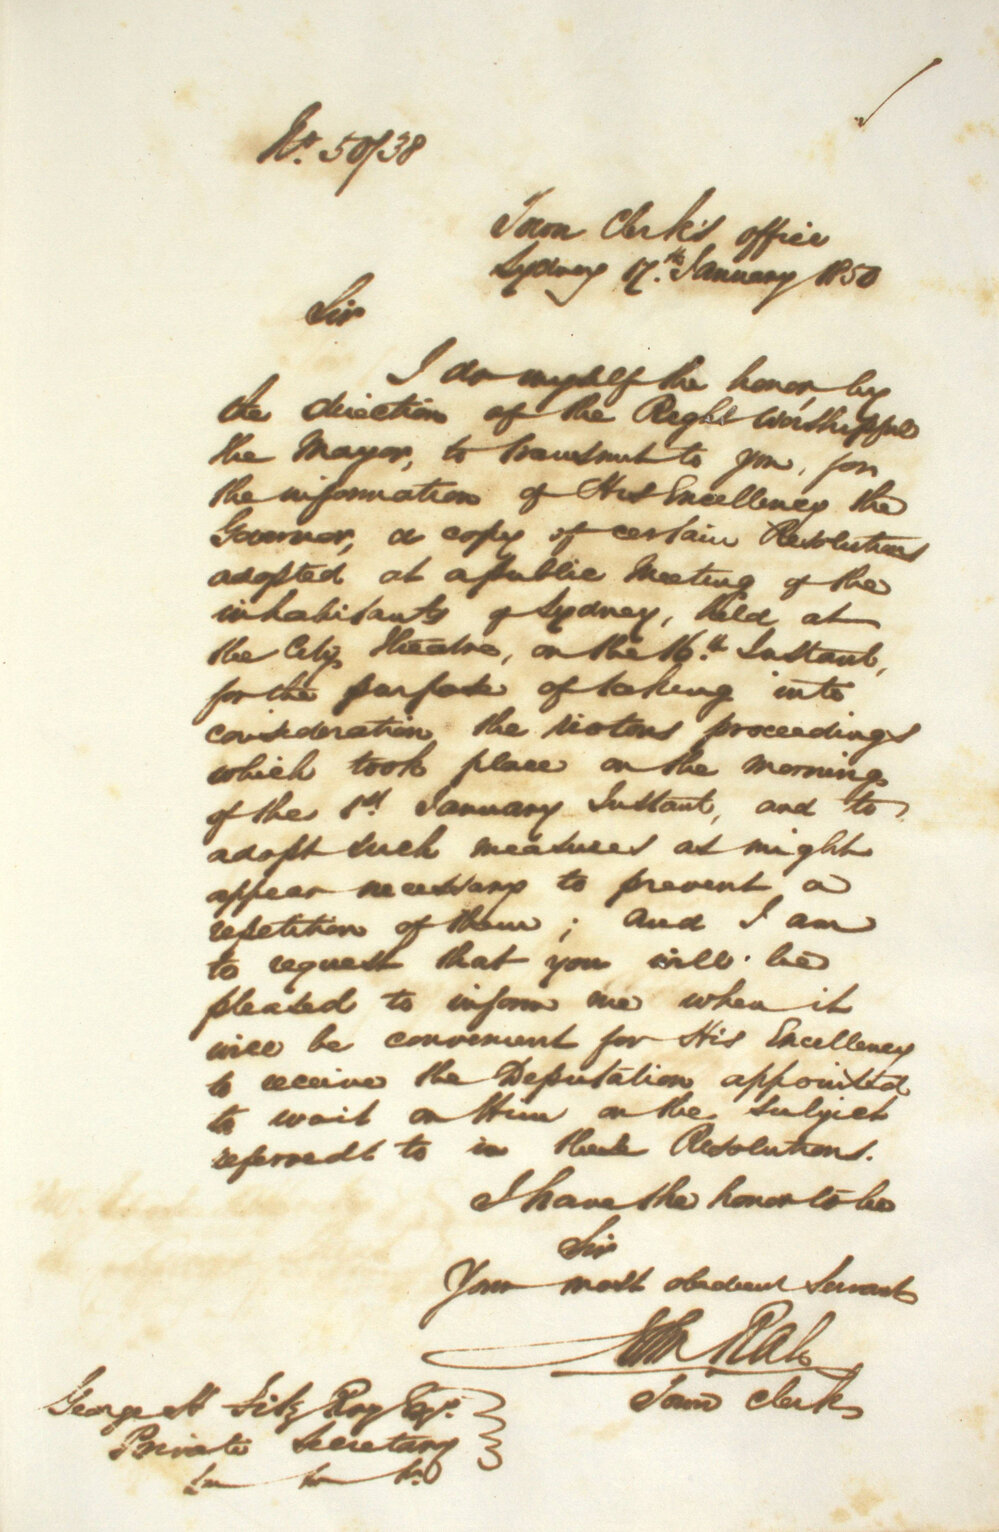 No. 50/38
Town Clerk's office
Sydney 17.th January 1850
Sir
I do myself the honor, by
the direction of the Right Worshipful
the Mayor, to transmit to you, for
the information of His Excellency the
Governor, a copy of certain Resolutions
adopted at a public Meeting of the
inhabitants of Sydney, held at
the City Theatre, on the 16.th Instant,
for the purpose of taking into
consideration the riotous proceedings
which took place on the morning
of the 1st January Instant, and to
adopt such measures as might
appear necessary to prevent a
repetition of them; and I am
to request that you will be
pleased to inform me when it
will be convenient for His Excellency
to receive the Deputation appointed
to wait on Him on the subject
referred to in these Resolutions.
I have the honor to be
Sir
Your most obedient Servant
John Rae
Town Clerk
George H Fitz Roy Esqr.
Private Secretary